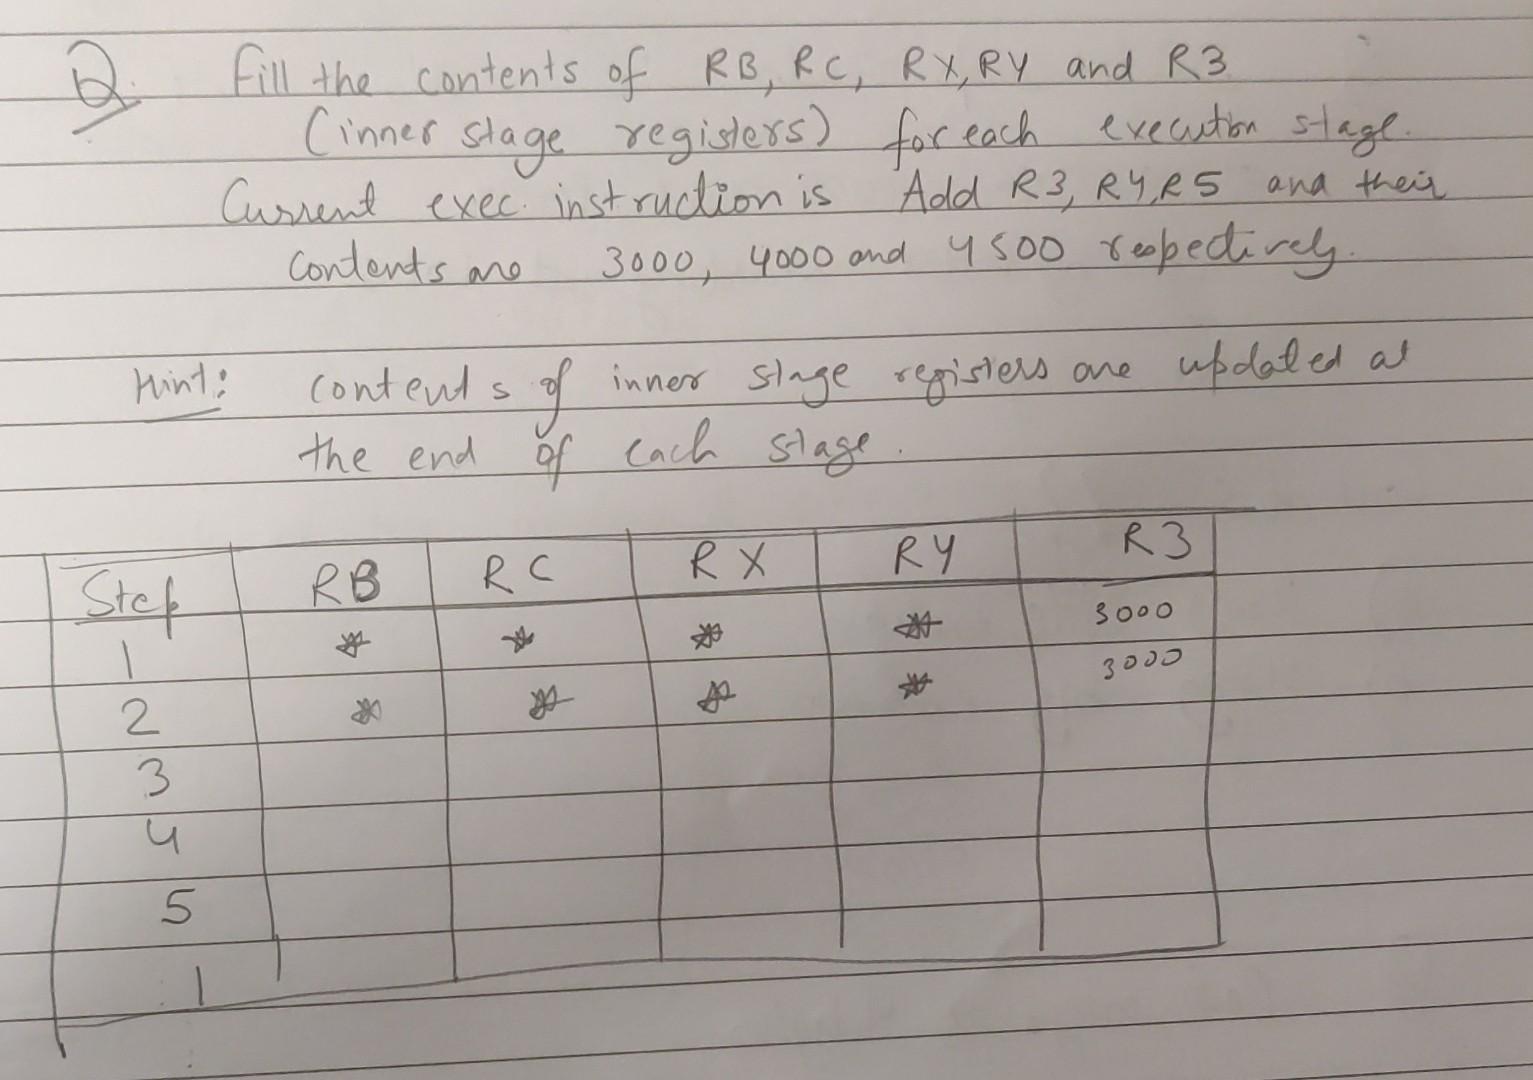 Q. Fill the contents of RB, RC, RX, RY and R3
(inner stage registers) for each execution stage.
Current exec. instruction is Add R3, R4, R5 and their
contents are 3000, 4000 and 4500 respectively.
Hint: contents of inner stage registers are updated at
the end of each stage.
Step RB RC RX RY R3
1 * * * * 3000
2 * * * * 3000
3
4
5
1